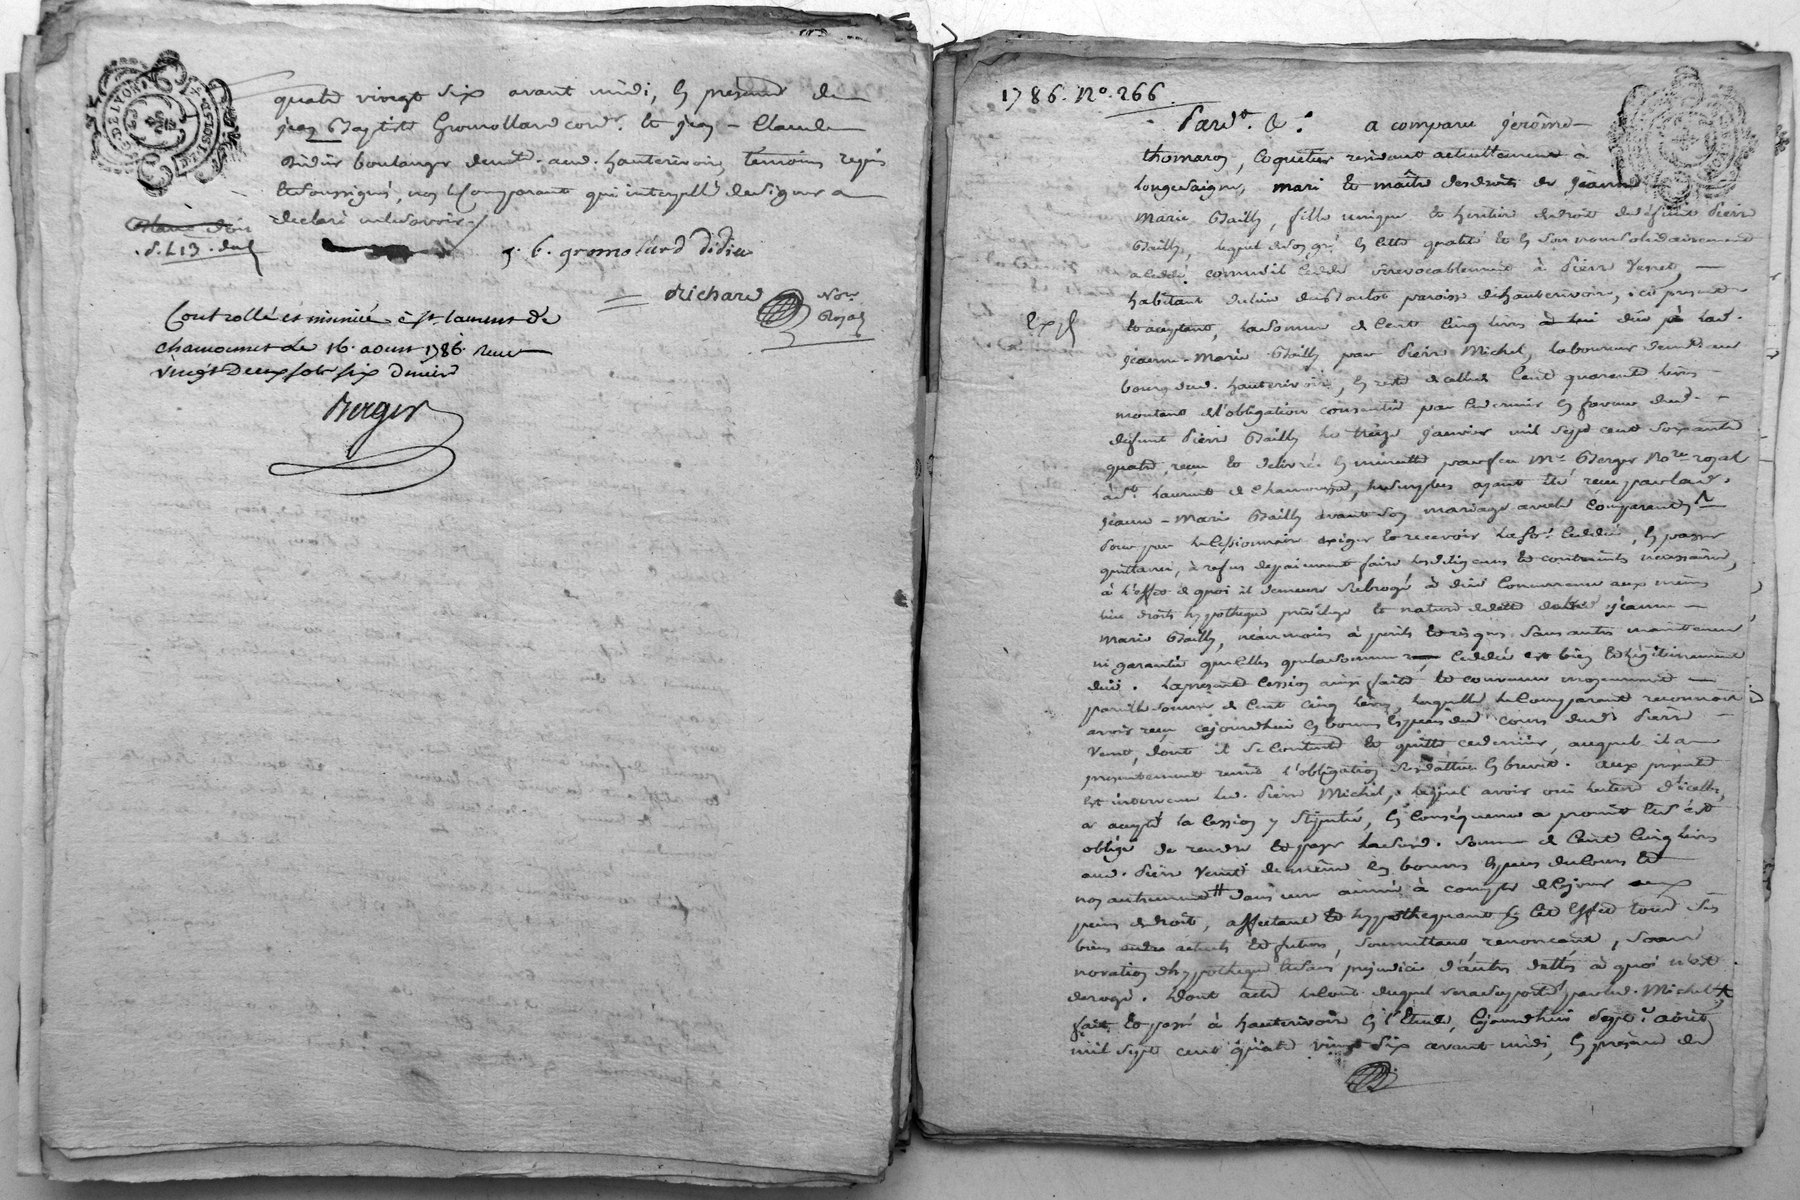 quatre vingt six avant midi, en présence de
jean Baptiste Gromollard cord.r et jean - Claude
Didier boulanger demt. aud. hauterivoire, témoins requis
et soussignés, non le Comparant qui interpellé de signer a
declaré ne le savoir
j. b. gromolard didier
Richard Nore Royal
Controllé et minuté à st. laurent de
chamousset le 16. aoust 1786. Recu
vingt deux sols six deniers
Berger
GE DE LYON
1786. No. 266.
Pardt. &. a comparu jerôme
thomaron, Coquetier residant actuellement à
Longesaigne, mari et maître des droits de jeanne
Marie Bailly, fille unique et heritiere de droit de défunt Pierre
Bailly, lequel de son gré en cette qualité et en son nom solidairement
a cédé comme il cede irrevocablement à Pierre Venet,
habitant du lieu du paroisse de hauterivoire, ici présent
Expé
et acceptant, la somme de Cent Cinq livres due par lad.
jeanne-Marie Bailly par Pierre Michel, laboureur demt. au
bourg dud. hauterivoire, en reste de celle de Cent quarante livres
montant de l'obligation consentie par ce dernier en faveur dud.
défunt Pierre Bailly le treize janvier mil sept cent soixante
quatre, reçue et délivrée en minutte par feu Me. Berger Nore royal
à st. Laurent de Chamousset, le surplus ayant été recu par lad.
jeanne - Marie Bailly avant son mariage avec le Comparant,
Pour par le Cessionnaire exiger et recevoir lad. se. Cedée, en passer
quittance, à refus de paiement faire les diligences et contraintes necessaires,
à l'effet de quoi il demeure subrogé à due Concurrence aux mêmes
droits hypotheque privilege et nature de dette de lad. jeanne
Marie Bailly, néanmoins à perils et risques sans autre maintenue
ni garantie qu'elles que la somme cedée est bien et légitimement
due. La présente Cession ainsi faite et convenue moyennant
pareille somme de Cent cinq livres, laquelle le Comparant reconnoit
avoir reçu cejourd'hui en bonnes especes du cours dud. Pierre
Venet, dont il se contente et quitte ce dernier, auquel il a
présentement remis l'obligation en brevet. aux présentes
est intervenu led. Pierre Michel, lequel avoir oui lecture d'icelle,
a accepté la Cession y stipulée, en conséquence a promis et s'est
obligé de rendre et payer lad. somme de Cent Cinq livres
aud. Pierre Venet de même en bonnes especes du Cours et
non autrement dans une année à compter de ce jour aux
peines de droit, affectant et hypothequant à cet effet tous ses
biens actuels et futurs, soumettant renonçant, sans
novation d'hypotheque et sans préjudice d'autres dettes à quoi n'est
derogé. Dont acte le Cout duquel sera supporté par led. Michel
fait et passé à hauterivoire en l'Etude, cejourd'hui sept aout
mil sept cent quatre vingt six avant midi, en présence de